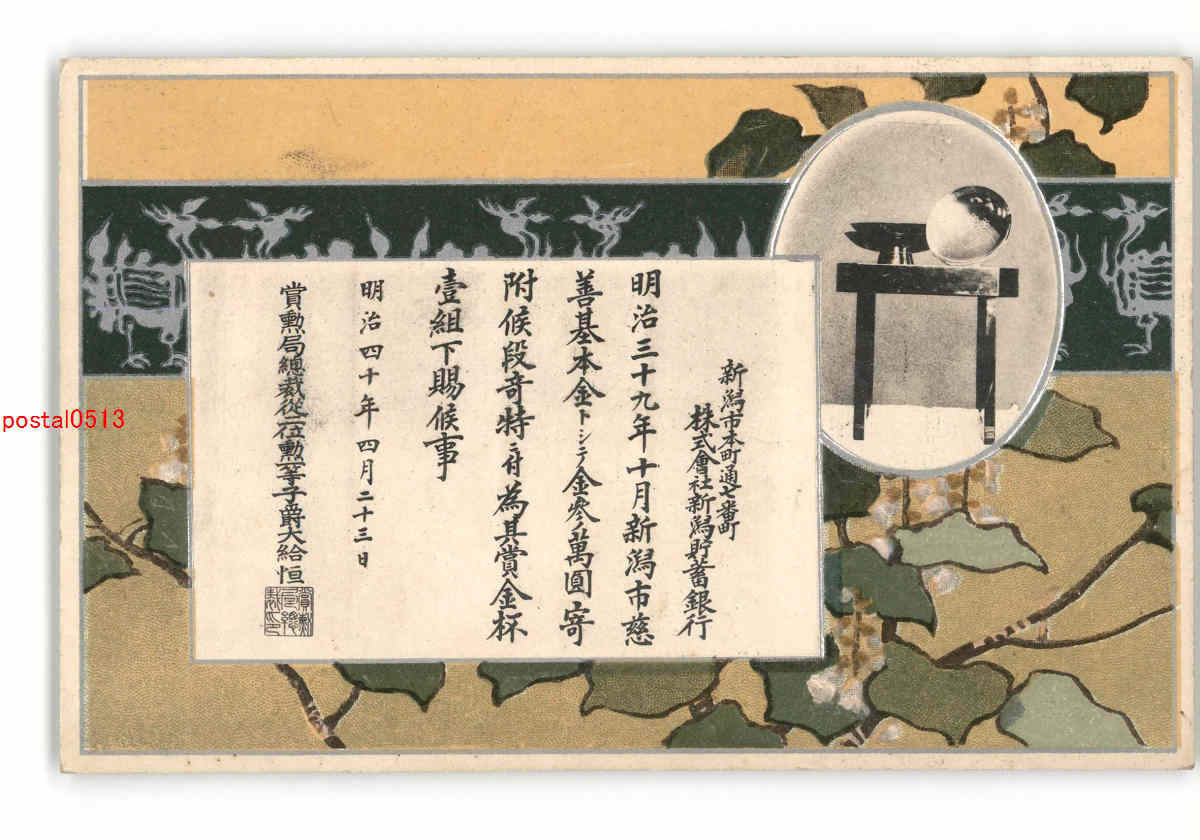 新潟市本町通七番町
株式會社新潟貯蓄銀行
明治三十九年十月新潟市慈
善基本金トシテ金參萬圓寄
附候段奇特ニ付為其賞金杯
壹組下賜候事
明治四十年四月二十三日
賞勲局總裁從二位勲一等子爵大給恒
賞勲
局總
裁印
postal0513